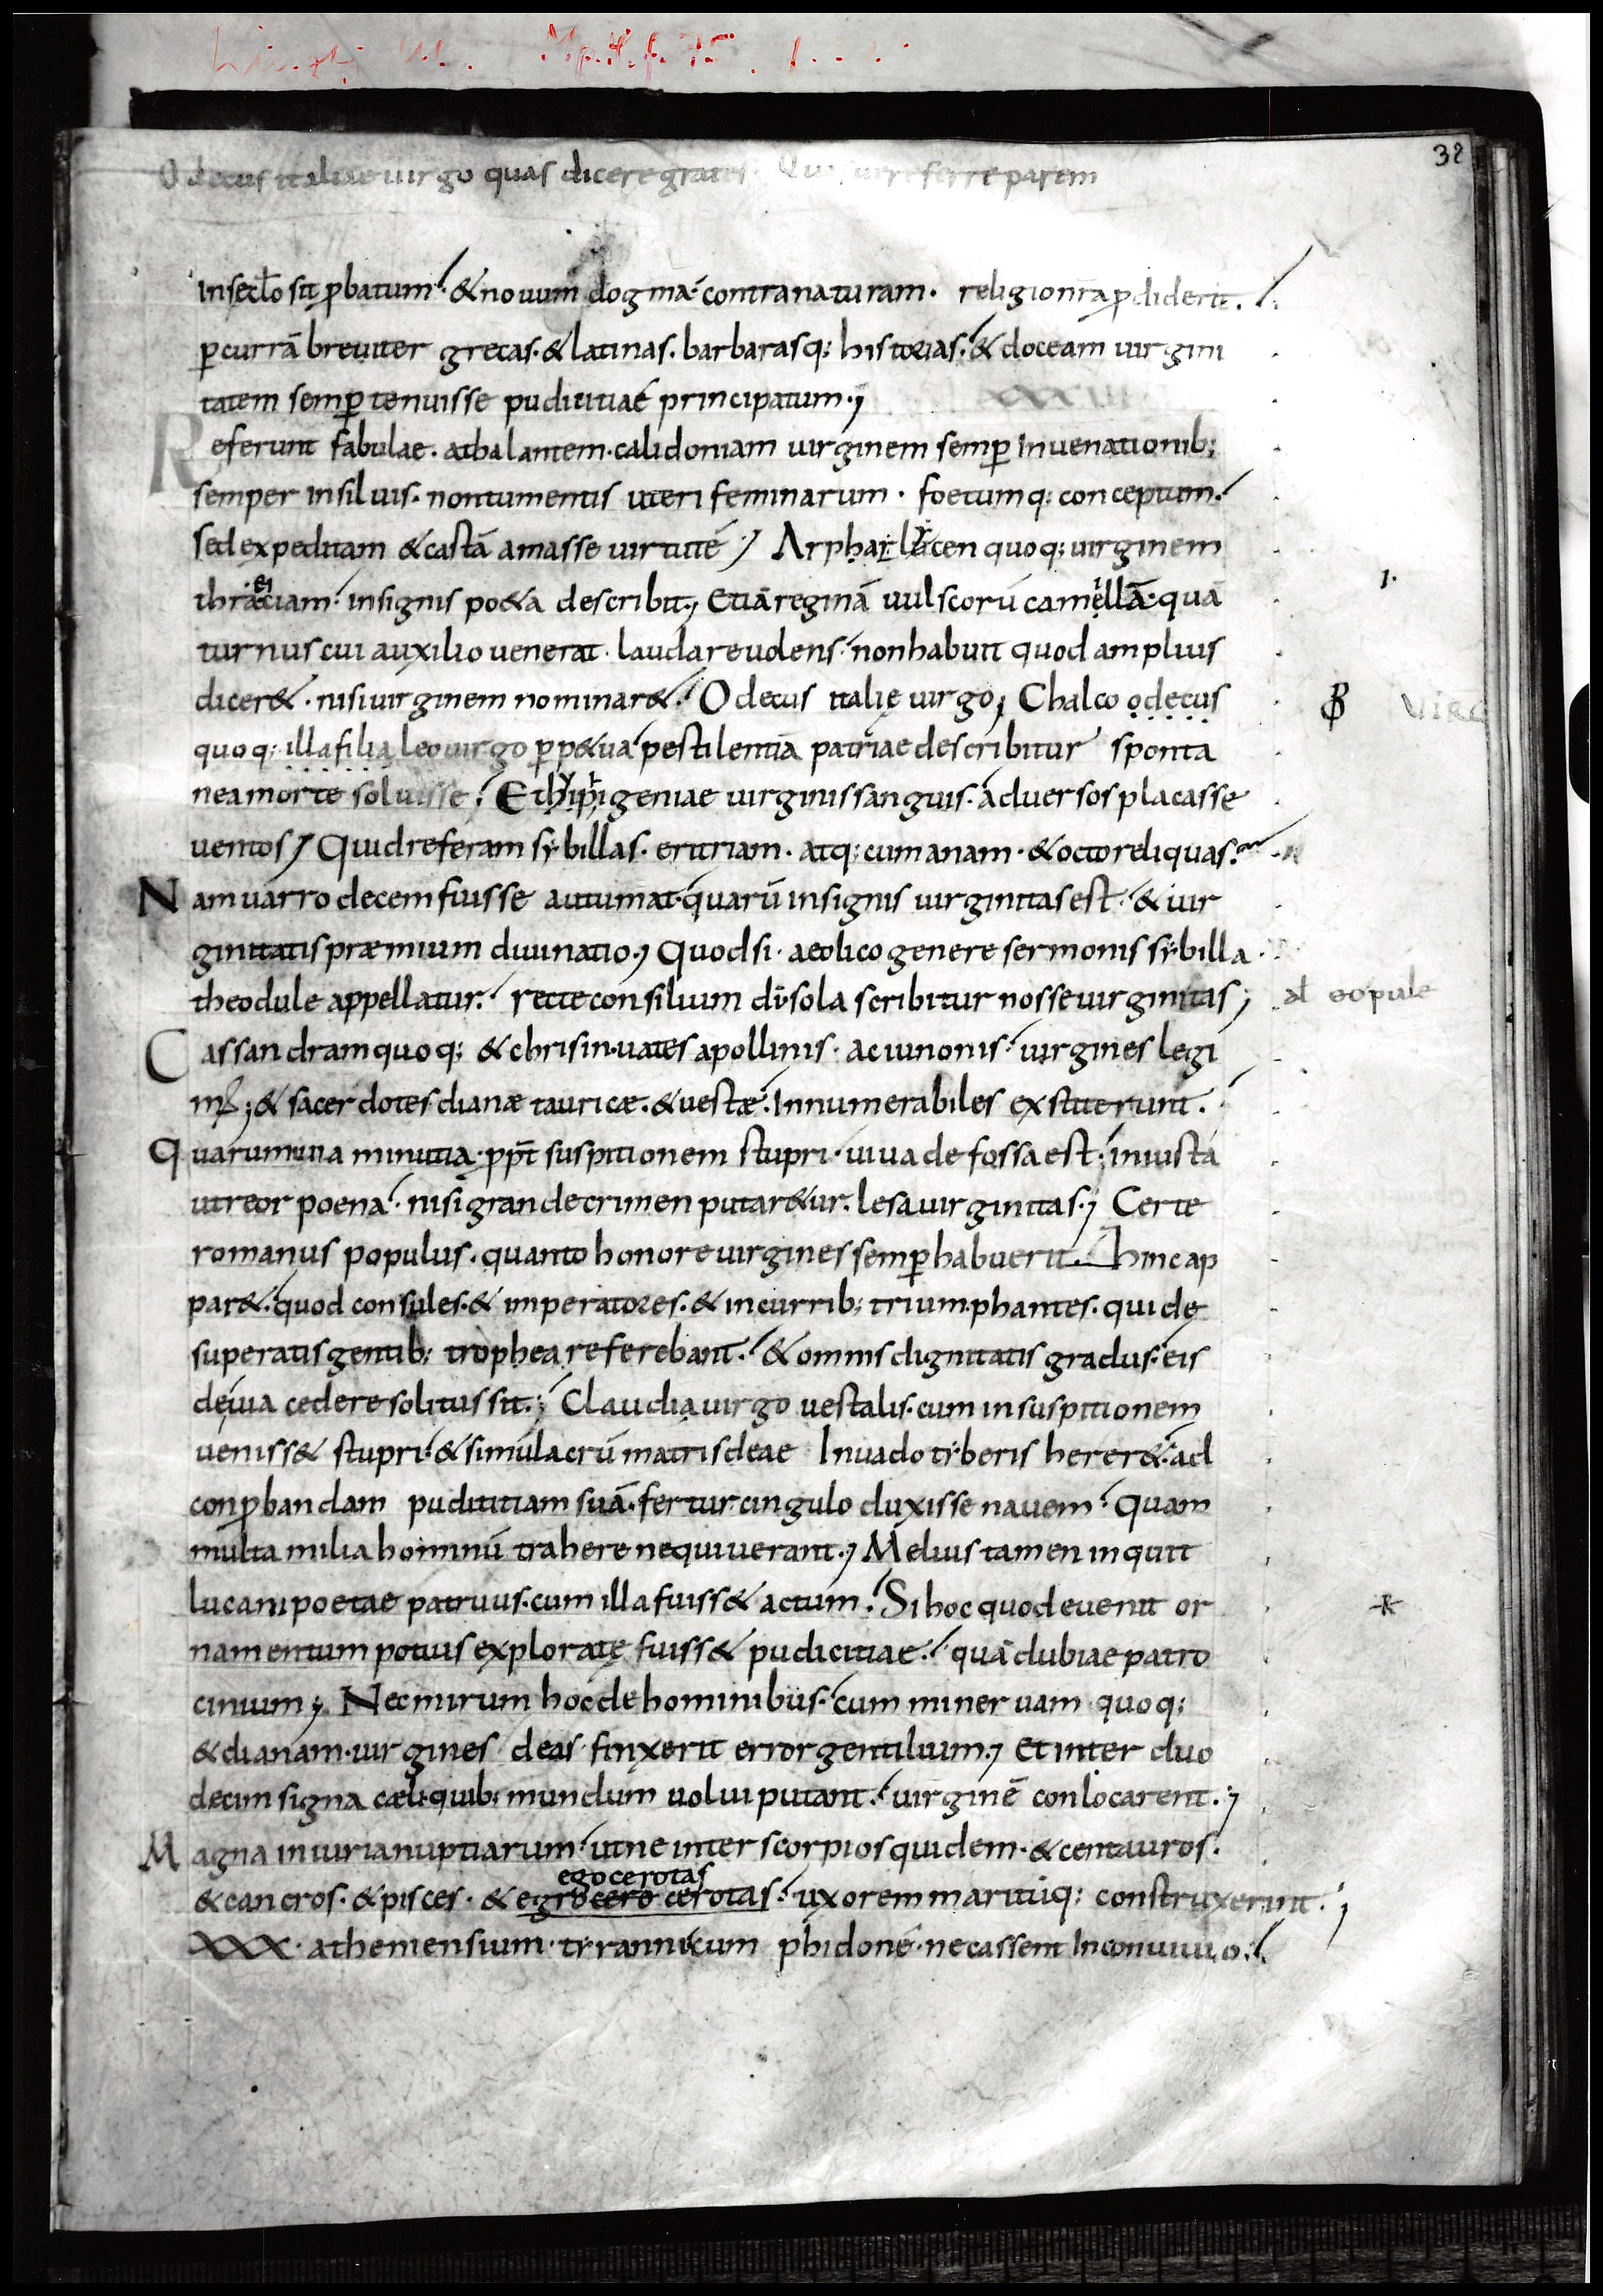 32
O decus italiae uirgo quas dicere grates referre parem
in secło sit ꝓbatum. & nouum dogma contra naturam. religio nr̄a ꝓdiderit.
ꝑcurrā breuiter grecas. & latinas. barbarasq; historias. & doceam uirgini
tatem semꝑ tenuisse pudicitiae principatum.
XXXIII
Referunt fabulae. athalantem. calidoniam uirginem semꝑ in uenationib;
semper in siluis. non tumentis uteri feminarum. foetumq; conceptum.
sed expeditam & castā amasse uirtutē. Arphallicen quoq; uirginem
thraciam. insignis po&a describit; Etiā reginā uulscorū camellā. quā
turnus cui auxilio uenerat. laudare uolens. non habuit quod amplius
dicer&. nisi uirginem nominar&. O decus italię uirgo; Chalco o decus VIRG
quoq; illa filia leo uirgo ꝑp&ua pestilentia patriae describitur sponta
nea morte soluisse. Et hiphigeniae uirginis sanguis. aduersos placasse
uentos; Quid referam sybillas. eritriam. atq; cumanam. & octo reliquas.
Nam uarro decem fuisse autumat. quarū insignis uirginitas est. & uir
ginitatis præmium diuinatio; Quod si. aeolico genere sermonis sybilla.
theodule appellatur. recte consilium dī sola scribitur nosse uirginitas; al eopule
Cassandram quoq; & chrisin. uates apollinis. ac iunonis. uirgines legi
m̄; & sacerdotes dianæ tauricæ. & uestæ. Innumerabiles exstiterunt.
Quarum una minutia. ꝓpt̄ suspitionem stupri. uiua defossa est. iniusta
ut reor poena. nisi grande crimen putar&ur. lesa uirginitas; Certe
romanus populus. quanto honore uirgines semꝑ habuerit. hinc ap
par&. quod consules. & imperatores. & in currib; triumphantes. qui de
superatis gentib; trophea referebant. & omnis dignitatis gradus. eis
de uia cedere solitus sit; Claudia uirgo uestalis. cum in suspitionem
ueniss& stupri. & simulacrū matris deae In uado tyberis herer&. ad
conꝓbandam pudititiam suā. fertur cingulo duxisse nauem. Quam
multa milia hominū trahere nequiuerant; Melius tamen inquit
lucani poetae patruus. cum illa fuiss& actum. Si hoc quod euenit or
namentum potius exploratę fuiss& pudicitiae. quā dubiae patro
cinium; Nec mirum hoc de hominibus. cum mineruam quoq;
& dianam. uirgines deas finxerit error gentilium; Et inter duo
decim signa cæli. quib; mundum uolui putant. uirginē conlocarent;
Magna iniuria nuptiarum. ut ne inter scorpios quidem. & centauros.
egocerotas
& cancros. & pisces. & egrocero cerotas. uxorem maritūq; construxerint;
XXX. atheniensium. tyrannicum phidonē. necassent In conuiuio.